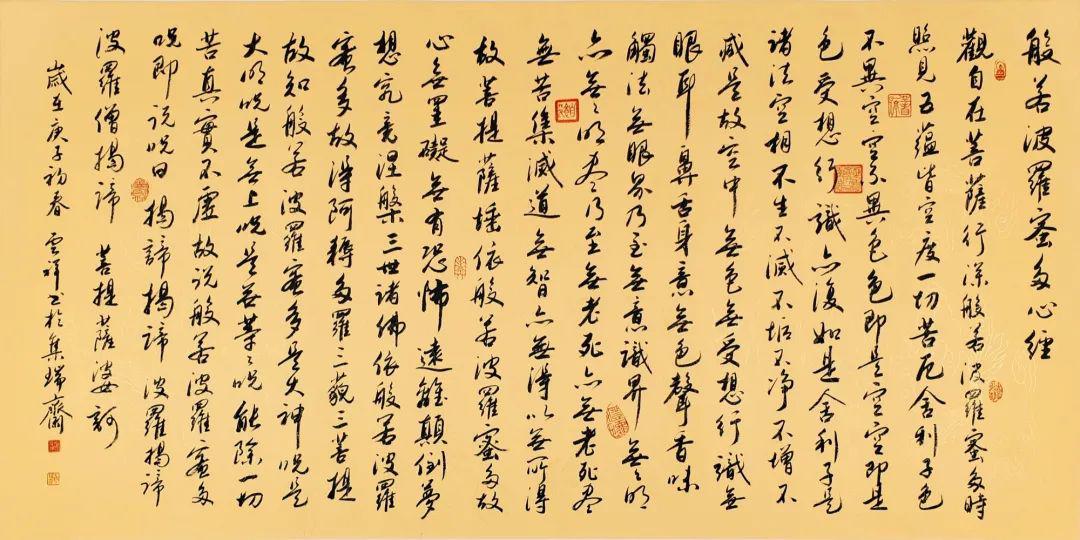 般若波羅蜜多心經
觀自在菩薩行深般若波羅蜜多時
照見五蘊皆空度一切苦厄舍利子色
不異空空不異色色即是空空即是
色受想行識亦復如是舍利子是
諸法空相不生不滅不垢不净不增不
減是故空中無色無受想行識無
眼耳鼻舌身意無色聲香味
觸法無眼界乃至無意識界無〻明
亦無〻明盡乃至無老死亦無老死盡
無苦集滅道無智亦無得以無所得
故菩提薩埵依般若波羅蜜多故
心無罣礙無有恐怖遠離顛倒夢
想究竟涅槃三世諸佛依般若波羅
蜜多故得阿耨多羅三藐三菩提
故知般若波羅蜜多是大神咒是
大明咒是無上咒是無等〻咒能除一切
苦真實不虛故説般若波羅蜜多
咒即説咒曰 揭諦揭諦 波羅揭諦
波羅僧揭諦 菩提薩婆訶
歲在庚子初春 雲祥书於集瑞齋